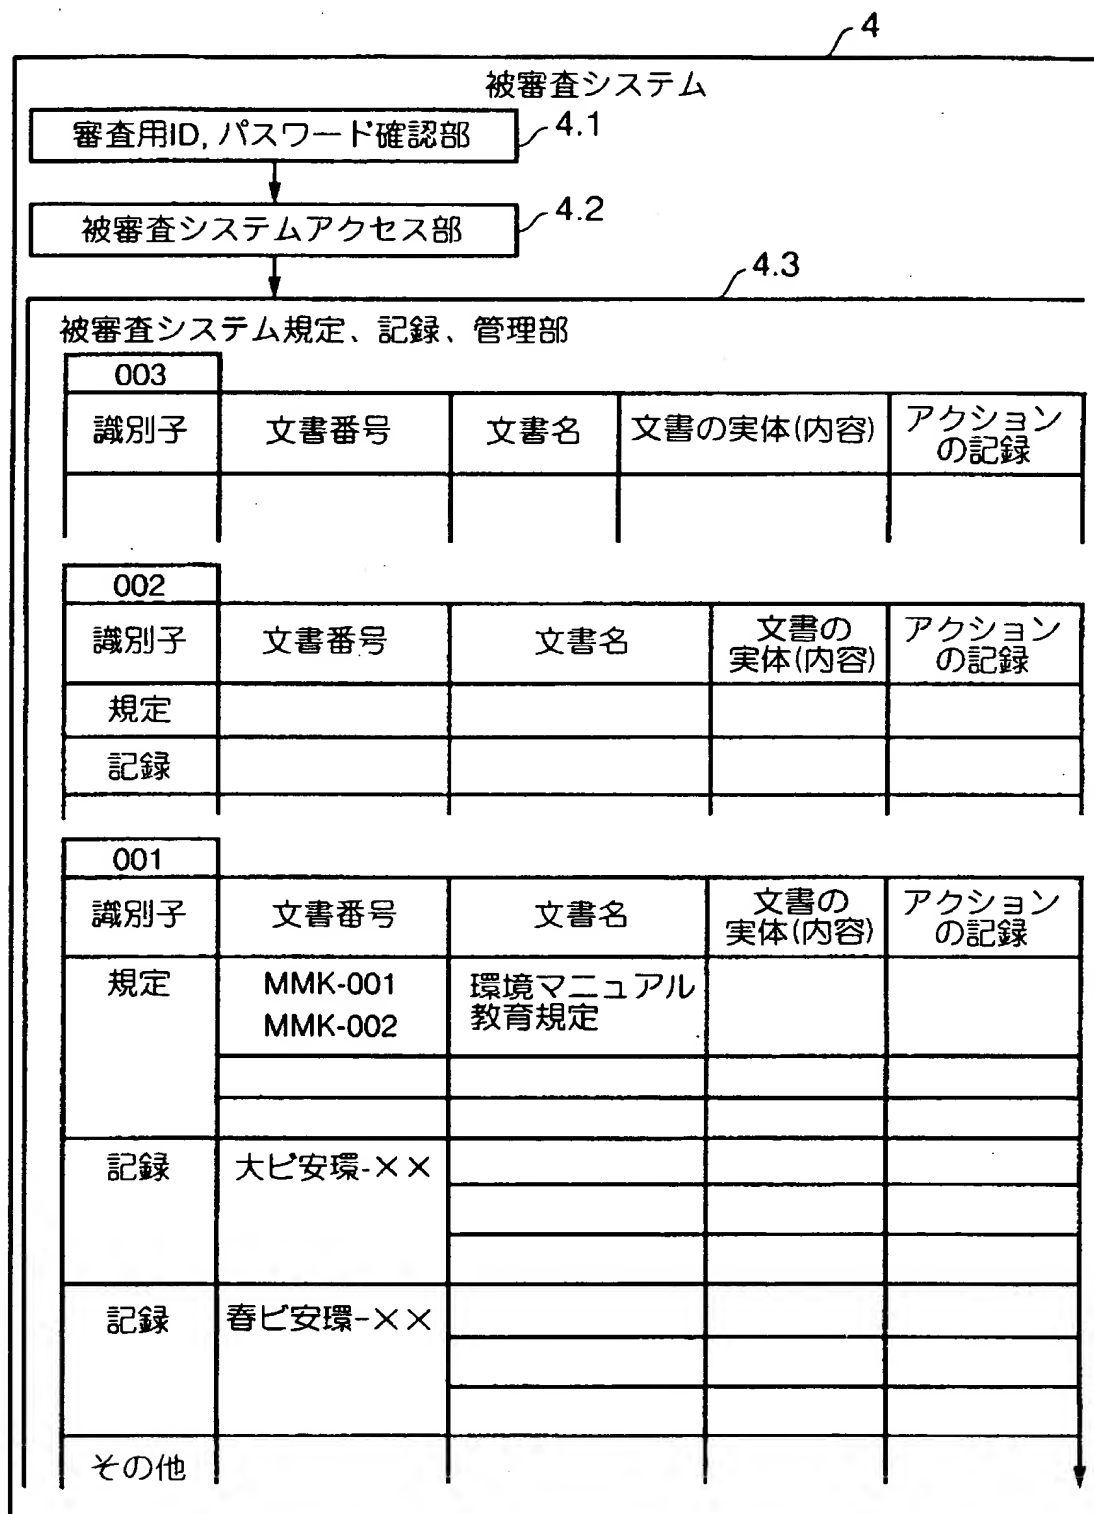 4
被審査システム
審査用ID, パスワード確認部
4.1
被審査システムアクセス部
4.2
4.3
被審査システム規定、記録、管理部
003
識別子 文書番号 文書名 文書の実体(内容) アクション
の記録
002
識別子 文書番号 文書名 文書の
実体(内容) アクション
の記録
規定
記録
001
識別子 文書番号 文書名 文書の
実体(内容) アクション
の記録
規定 MMK-001 環境マニュアル
MMK-002 教育規定
記録 大ビ安環-××
記録 春ビ安環-××
その他